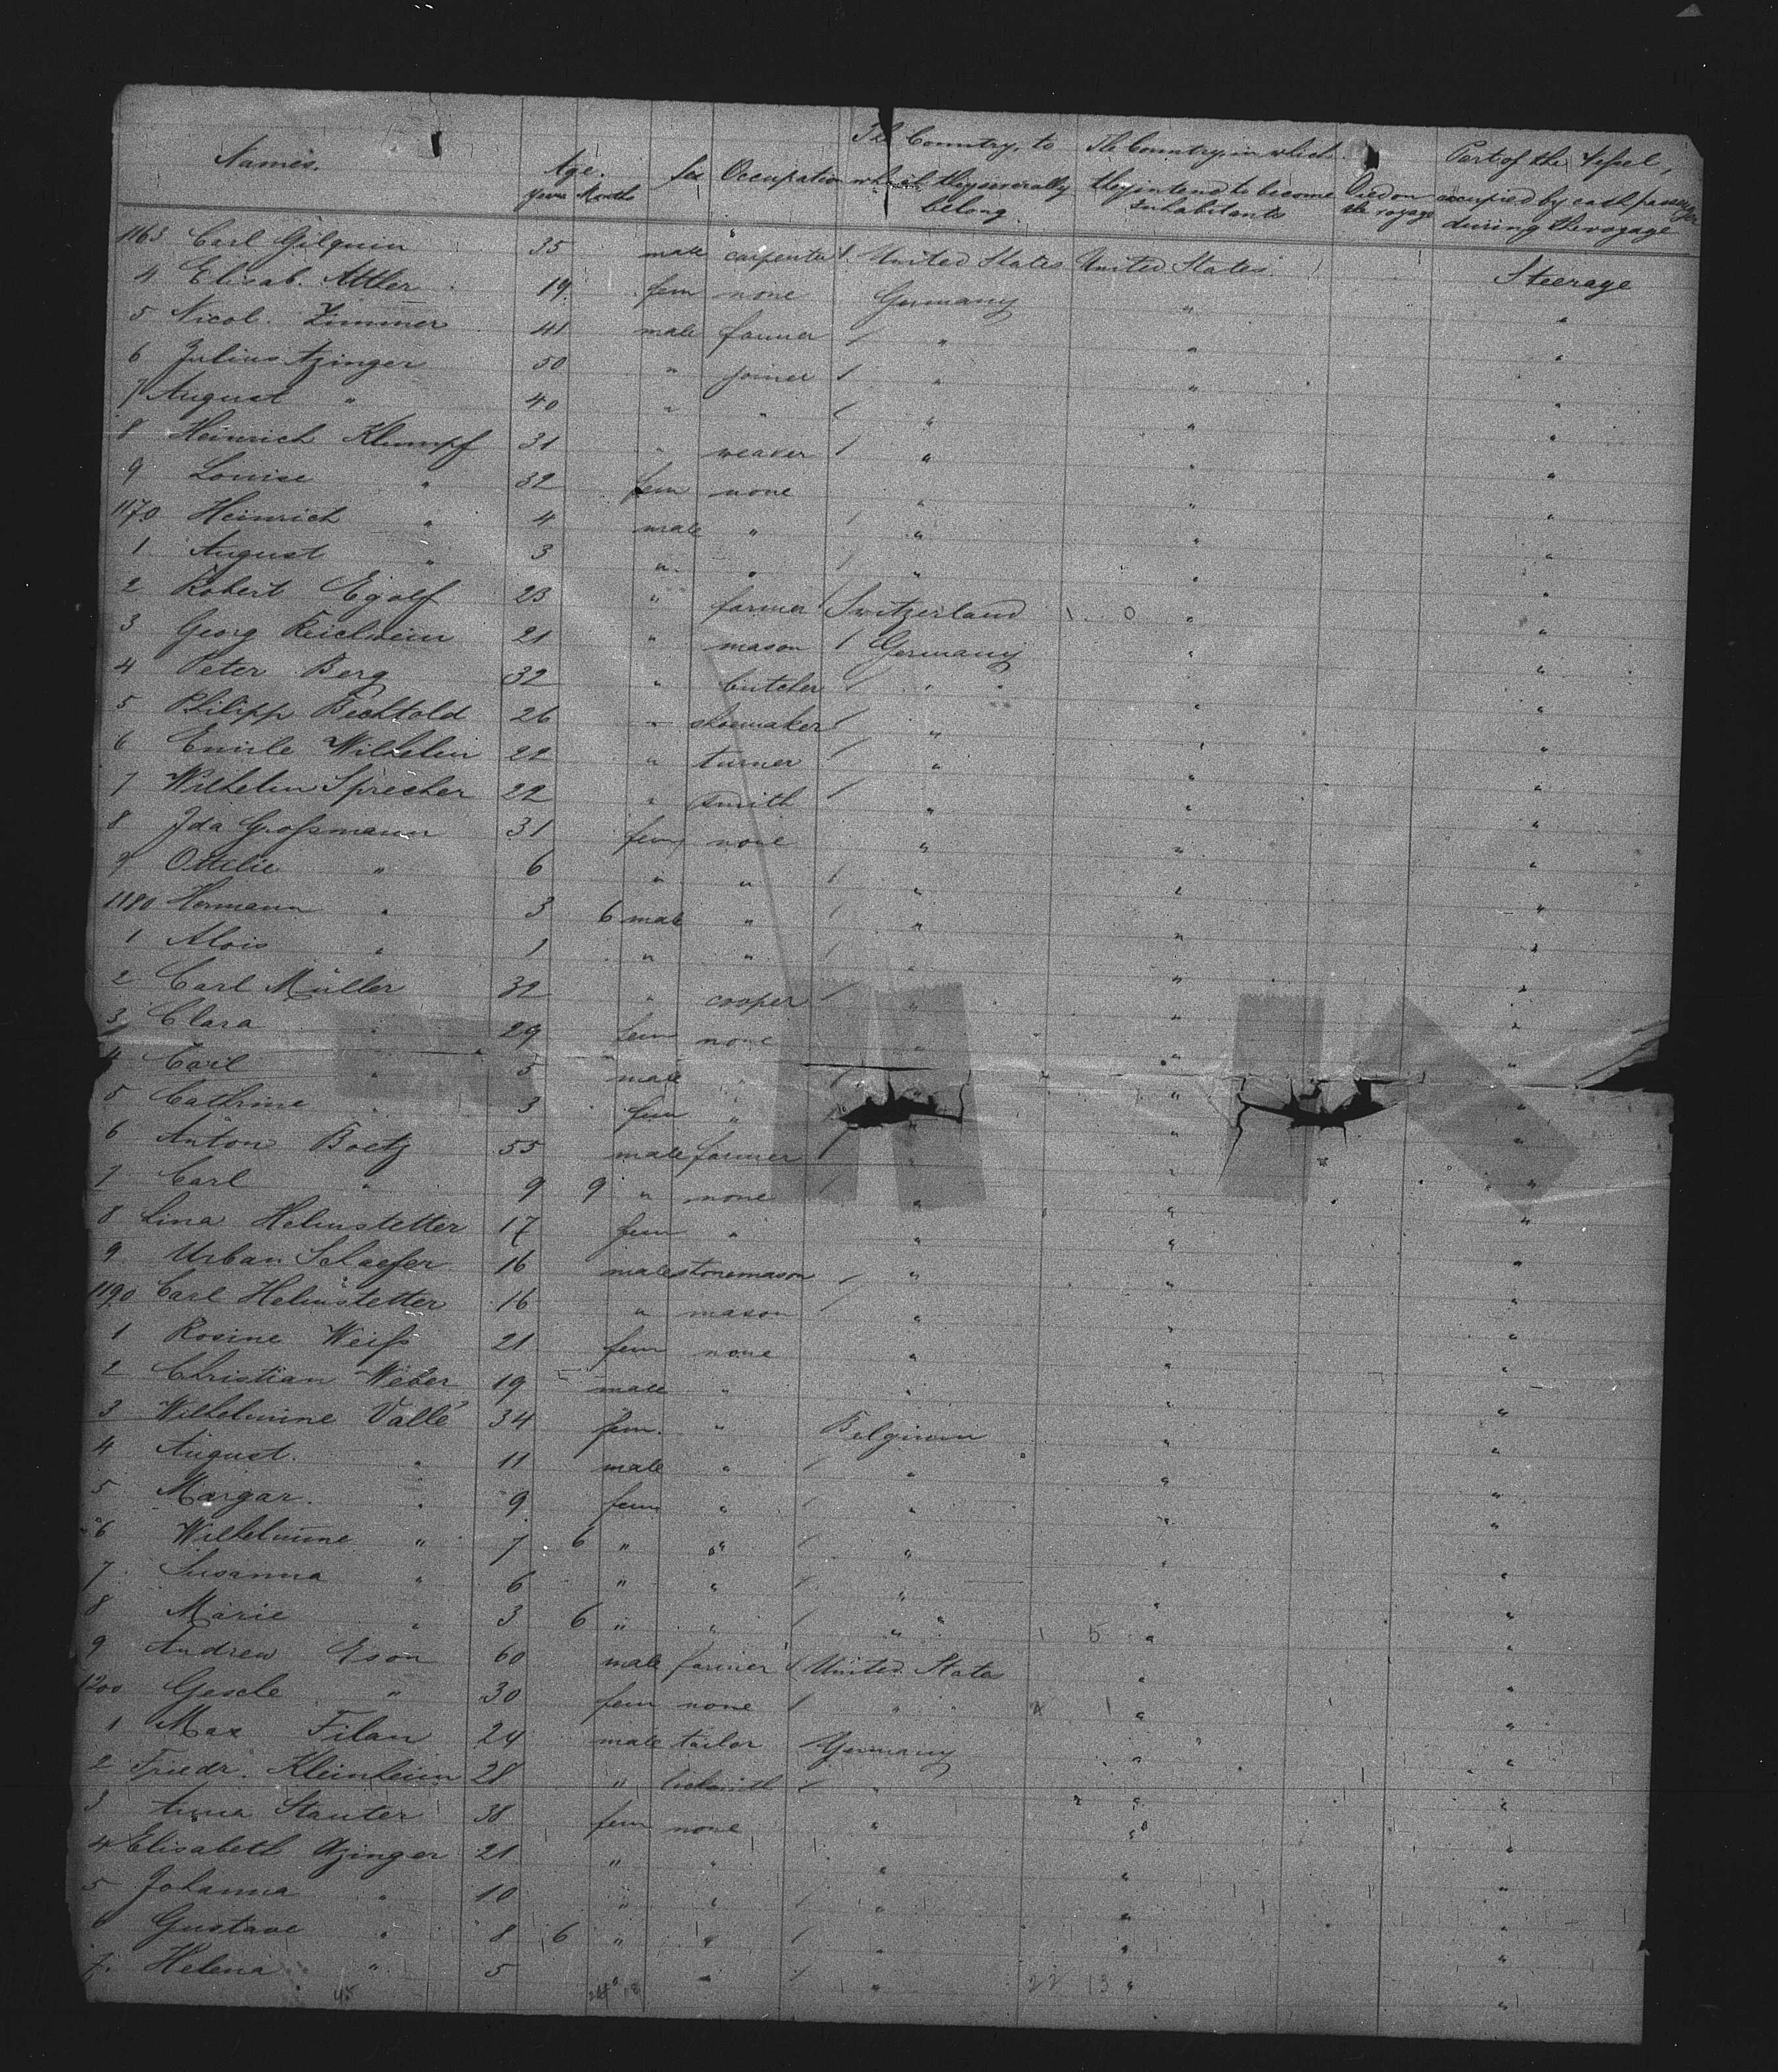 Names. Age. Sex Occupation The Country, to The Country, in which Died on Part of the Vessel,
years Months which they severally they intend to become the voyage occupied by each passenger
belong. inhabitants during the voyage
1163 Carl Gilquin 35 male carpenter 1 United States United States Steerage
4 Elisab. 19 fem none Germany " "
5 Nicol. Zimmer 41 male farmer 1 " " "
6 Julius Azinger 50 " joiner 1 " " "
7 August " 40 " " 1 " " "
8 Heinrich Klumpf 31 " weaver 1 " " "
9 Louise " 32 fem none " " "
1170 Heinrich " 4 male " 1 " " "
1 August " 3 " " 1 " " "
2 Robert Egolf 23 " farmer 1 Switzerland 1 0 " "
3 Georg Reichwein 21 " mason 1 Germany " "
4 Peter Berg 32 " butcher 1 " " "
5 Philipp Bechtold 26 " shoemaker 1 " " "
6 Emile Wilhelm 22 " turner 1 " " "
7 Wilhelm Sprecher 22 " smith 1 " " "
8 Ida Großmann 31 fem none " " "
9 Ottilie " 6 " " 1 " " "
1180 Hermann " 3 6 male " 1 " " "
1 Alois " 1 " " 1 " " "
2 Carl Müller 32 " cooper 1 " " "
3 Clara " 29 fem none " " "
4 Carl " 5 male " 1 " " "
5 Cathrine " 3 fem " 1 " " "
6 Anton Boetz 55 male farmer 1 " " "
7 Carl " 9 9 " none 1 " " "
8 Lina Helmstetter 17 fem " " " "
9 Urban Schaefer 16 male stonemason 1 " " "
1190 Carl Helmstetter 16 " mason 1 " " "
1 Rosine Weiß 21 fem none " " "
2 Christian Weber 19 male " " " "
3 Wilhelmine Vallé 34 fem. " Belgium " "
4 August " 11 male " 1 " " "
5 Margar. " 9 fem " 1 " " "
6 Wilhelmine " 7 6 " " 1 " " "
7 Susanna " 6 " " 1 " " "
8 Marie " 3 6 " " 1 " 1 5 " "
9 Andrew Eson 60 male farmer 1 United States " "
1200 Gesche " 30 fem none 1 " 2 1 " "
1 Max Filan 24 male tailor Germany " "
2 Friedr. Kleinheim 28 " locksmith 1 " " "
3 Anna Stauter 38 fem none " " "
4 Elisabeth Azinger 21 " " " " "
5 Johanna " 10 " " 1 " " "
6 Gustave " 8 6 " " 1 " " "
7. Helena " 5 " " 1 " 22 13 " "
45